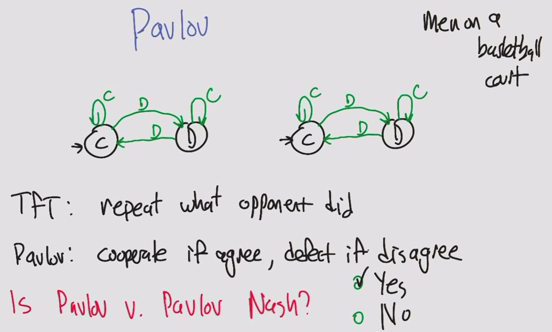 Pavlov
Men on a
basketball
court
C D C
C D D
C D C
C D D
TFT: repeat what opponent did
Pavlov: cooperate if agree, defect if disagree
Is Pavlov v. Pavlov Nash?
Yes
No